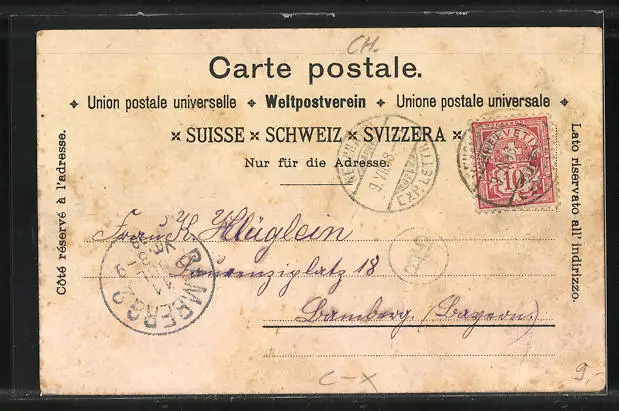 CH.
Carte postale.
Union postale universelle ✦ Weltpostverein ✦ Unione postale universale
× SUISSE × SCHWEIZ × SVIZZERA ×
Nur für die Adresse.
Côté réservé à l'adresse.
Lato riservato all'indirizzo.
HELVETIA
10
9.VII.98
BAMBERG 2
Frau K. Hüglein
18
Bamberg. (Bayern.)
C-X
9.-